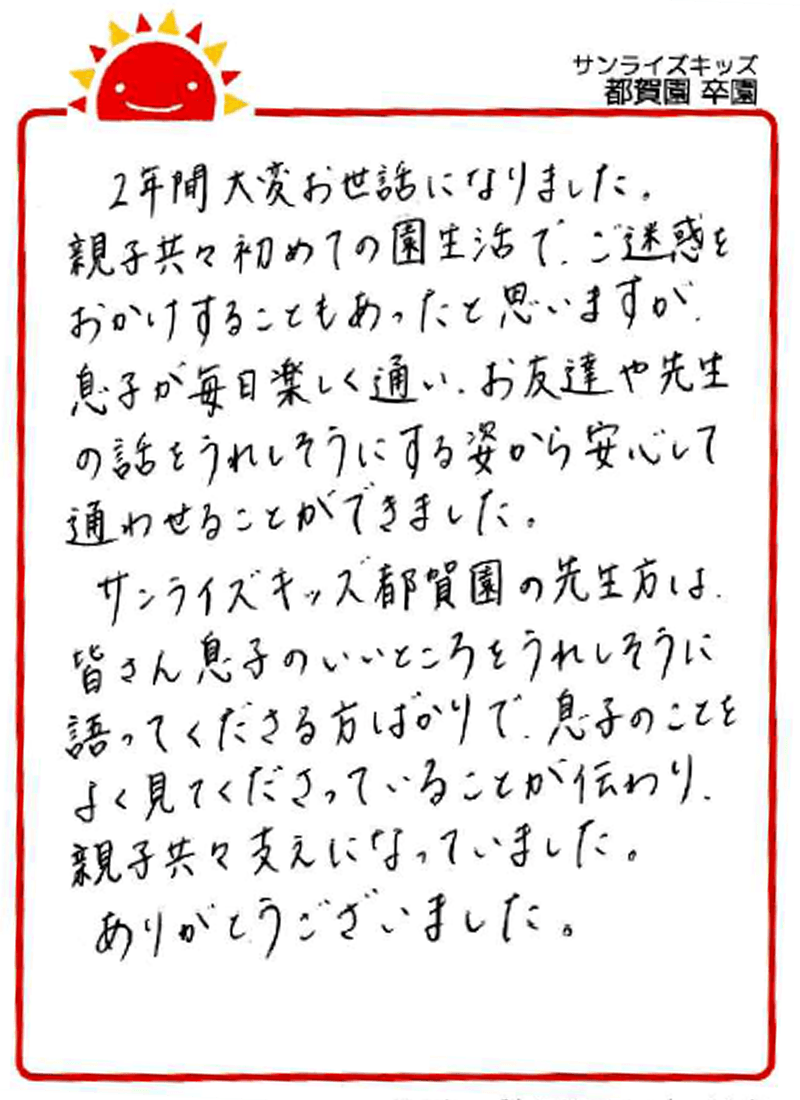 サンライズキッズ
都賀園 卒園
2年間大変お世話になりました。
親子共々初めての園生活で、ご迷惑を
おかけすることもあったと思いますが、
息子が毎日楽しく通い、お友達や先生
の話をうれしそうにする姿から安心して
通わせることができました。
サンライズキッズ都賀園の先生方は、
皆さん息子のいいところをうれしそうに
語ってくださる方ばかりで、息子のことを
よく見てくださっていることが伝わり、
親子共々支えになっていました。
ありがとうございました。